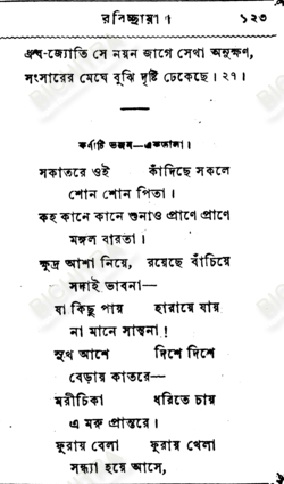 রবিচ্ছায়া। ১২৩
ধ্রুব-জ্যোতি সে নয়ন জাগে সেথা অনুক্ষণ,
সংসারের মেঘে বুঝি দৃষ্টি ঢেকেছে। ২১।
কর্ণাটি ভজন—একতালা।
সকাতরে ওই কাঁদিছে সকলে
শোন শোন পিতা।
কহ কানে কানে শুনাও প্রাণে প্রাণে
মঙ্গল বারতা।
ক্ষুদ্র আশা নিয়ে, রয়েছে বাঁচিয়ে
সদাই ভাবনা—
যা কিছু পায় হারায়ে যায়
না মানে সান্ত্বনা!
সুখ আশে দিশে দিশে
বেড়ায় কাতরে—
মরীচিকা ধরিতে চায়
এ মরু প্রান্তরে।
ফুরায় বেলা ফুরায় খেলা
সন্ধ্যা হয়ে আসে,